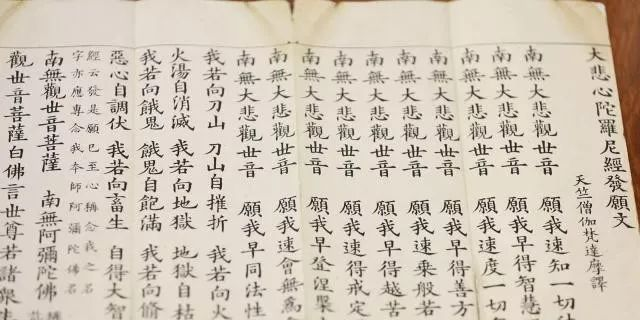 大悲心陀羅尼經發願文
天竺僧伽梵達摩譯
南無大悲觀世音 願我速知一切
南無大悲觀世音 願我早得智慧
南無大悲觀世音 願我速度一切
南無大悲觀世音 願我早得善方
南無大悲觀世音 願我速乘般若
南無大悲觀世音 願我早得越苦
南無大悲觀世音 願我速得戒定
南無大悲觀世音 願我早登涅槃
南無大悲觀世音 願我速會無為
南無大悲觀世音 願我早同法性
我若向刀山 刀山自摧折 我若向火
火湯自消滅 我若向地獄 地獄自枯
我若向餓鬼 餓鬼自飽滿 我若向脩
惡心自調伏 我若向畜生 自得大智
經云發是願已至心稱念我之名
字亦應專念我本師阿彌陀佛名
南無觀世音菩薩 南無阿彌陀佛
觀世音菩薩白佛言世尊若諸衆